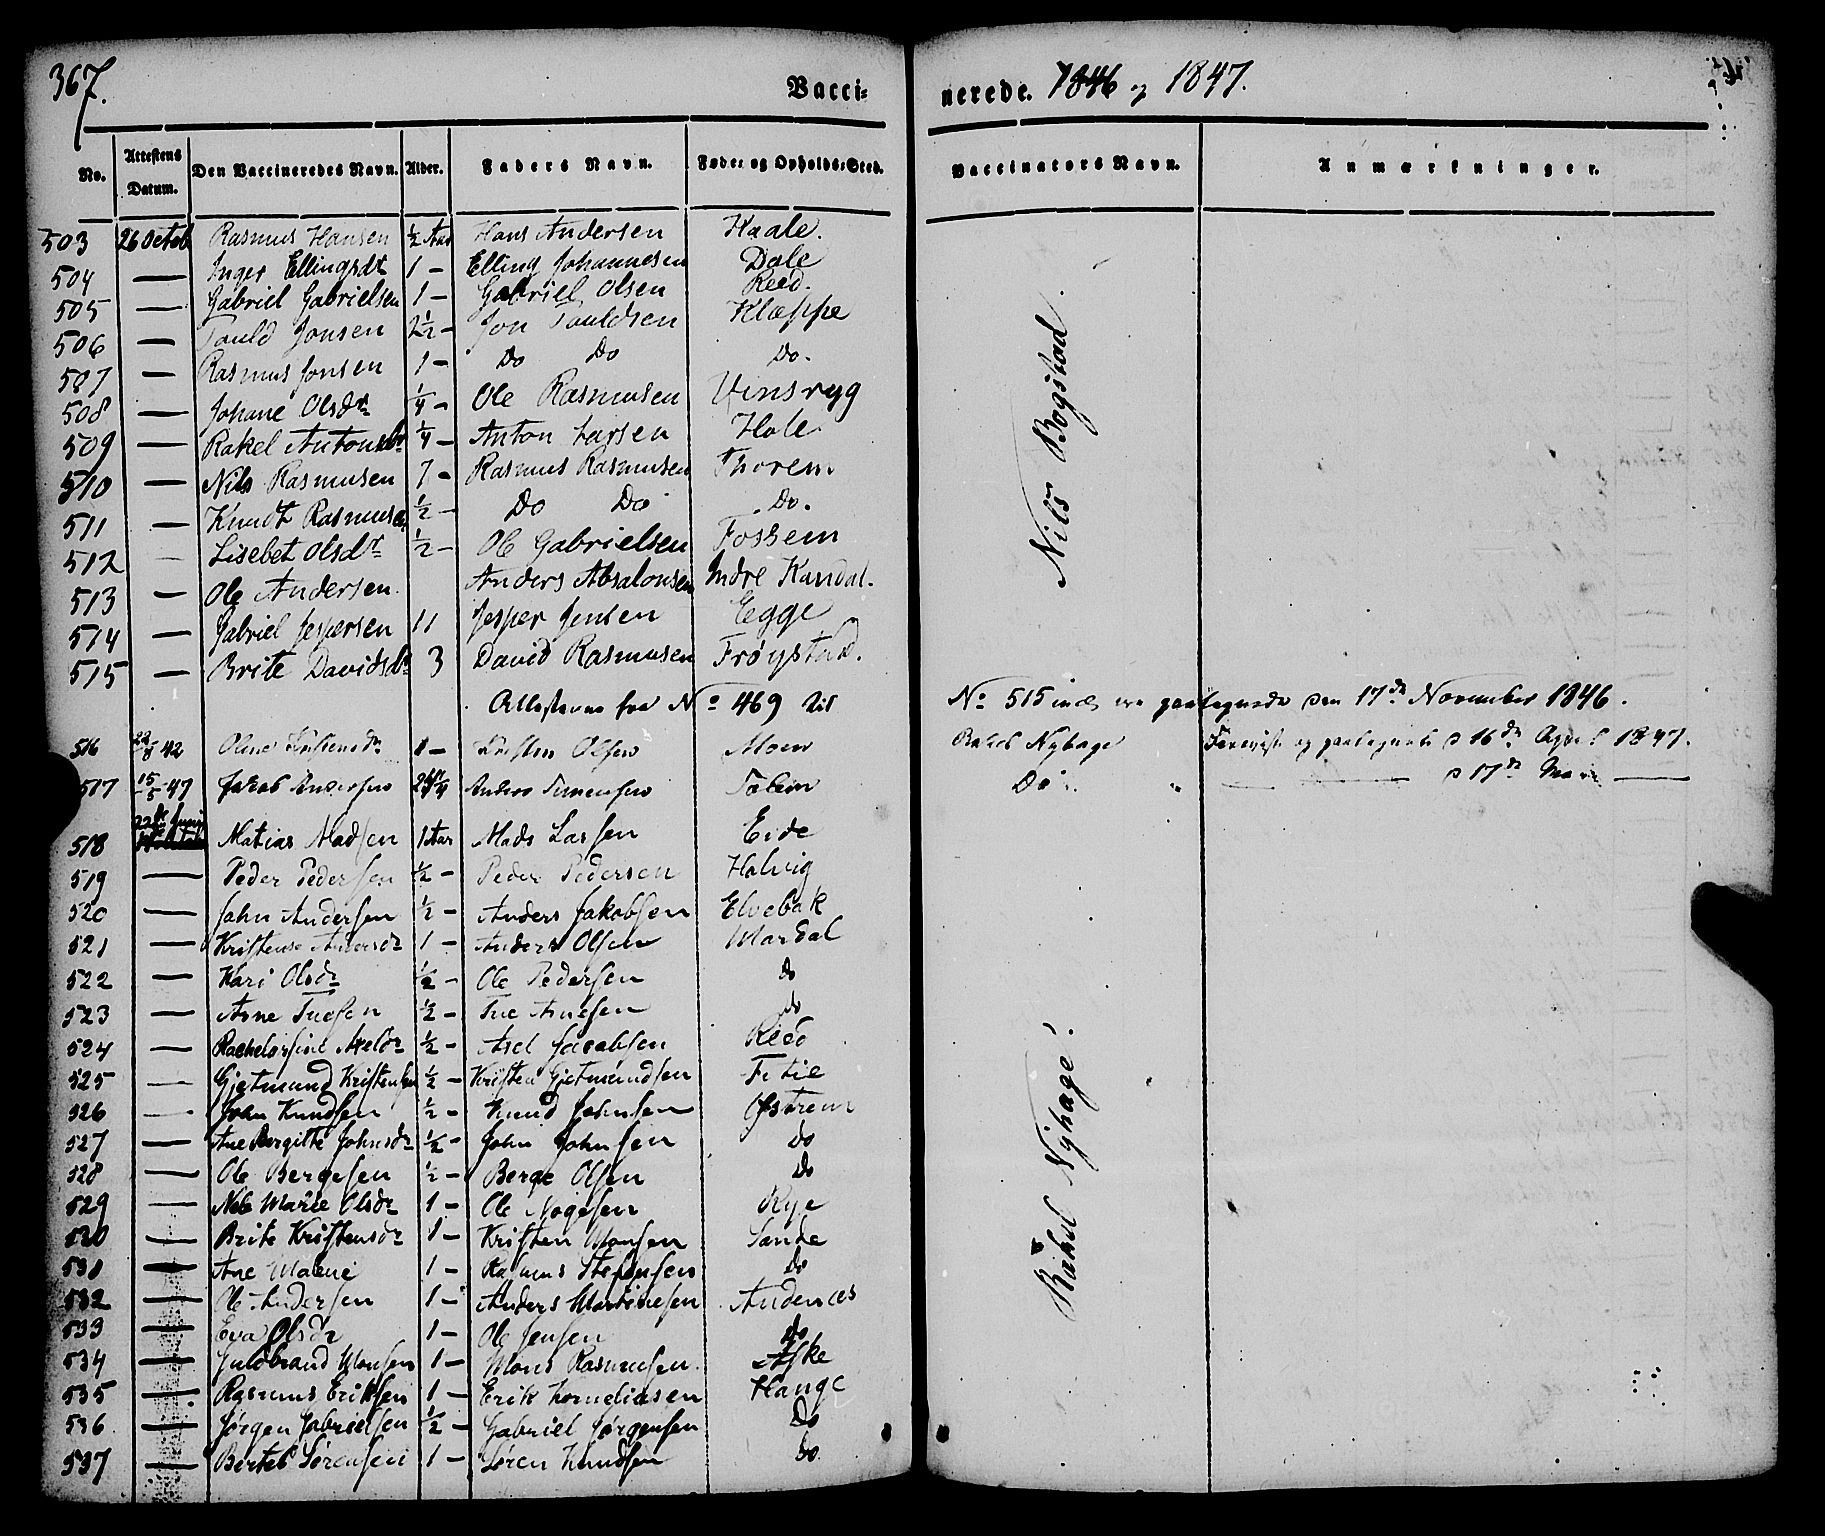 367.
Vacci= nerede. 1846 og 1847.
No. Attestens Datum. Den Vaccineredes Navn. Alder. Faders Navn. Føde= og Opholds=Sted. Vaccinators Navn. Anmærkninger.
503 26 Octob Rasmus Hansen ½ Aar Hans Andersen Haale.
504 — Inger Ellingsdt 1 — Elling Johannesen Dale
505 — Gabriel Gabrielsen 1 — Gabriel Olsen Reed.
506 — Tauld Jonsen 2½ — Jon Tauldsen Klæppe
507 — Rasmus Jonsen 1 — Do Do Do.
508 — Johane Olsdr ¼ — Ole Rasmusen Vinsryg
509 — Rakel Antonsdr ¼ — Anton Larsen Hole
510 — Nils Rasmusen 7 — Rasmus Rasmusen Thorem
511 — Knudt Rasmusen ½ — Do Do Do.
512 — Lisebet Olsdr ½ — Ole Gabrielsen Foshem
513 — Ole Andersen Anders Absalonsen Indre Kandal.
514 — Gabriel Jespersen 11 Jesper Jensen Egge
515 — Brite Davidsdr 3 David Rasmusen Frøystad.
Nils Bogstad
Attesterne fra No 469 til No 515 incl. ere paategnede den 17de November 1846.
516 42 Oline 1 — Olsen Moen Rakel Nyhage og paategnet d 16de 1847.
517 15/5 47 Jakob Andersen Anders Do. — d 17de Mai —
518 22de Juni Matias Madsen 1 Aar Mads Larsen Eide
519 — Peder Pedersen ½ — Peder Pedersen Holvig
520 — John Andersen ½ — Anders Jakobsen Elvebak
521 — Kristense Andersdr 1 — Anders Olsen Mardal
522 — Kari Olsdr ½ — Ole Pedersen do
523 — Arne Tuesen ½ — Tue Arnesen do
524 — Rachelosfine Axeldr ½ — Axel Jacobsen Reed
525 — Gjetmund Kristensen ½ — Kristen Gjetmundsen Fitie
526 — Joan Knudsen ½ — Knud Johnsen Østrem
527 — Ane Bergitte Johnsdr ½ — John Johnsen do
528 — Ole Bergesen ½ — Berge Olsen Do
529 — Nele Marie Olsdr 1 — Ole Mogesen Rye
530 — Brite Kristensdr 1 — Kristen Monsen Sande
531 — Ane Malene 1 — Rasmus Stefensen Do
532 — Ole Andersen 1 — Anders Martinesen Andenæs
533 — Eva Olsdr 1 — Ole Jensen Do
534 — Guldbrand Monsen 1 — Mons Rasmusen. Aske
535 — Rasmus Eriksen 1 — Erik Korneliusen Hauge
536 — Jørgen Gabrielsen ½ — Gabriel Jørgensen Do
537 — Bertel Sørensen 1 — Søren Knudsen do
Rakel Nyhage!